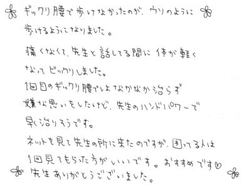 ギックリ腰で歩けなかったのが、ウソのように
歩けるようになりました。
痛くなくて、先生と話してる間に体が軽く
なってビックリしました。
1回目のギックリ腰がなかなか治らず
嫌な思いをしたけど、先生のハンドパワーで
早く治りそうです。
ネットを見て先生の所に来たのですが、困ってる人は
1回見てもらった方がいいです。おすすめです♡
先生ありがとうございました。